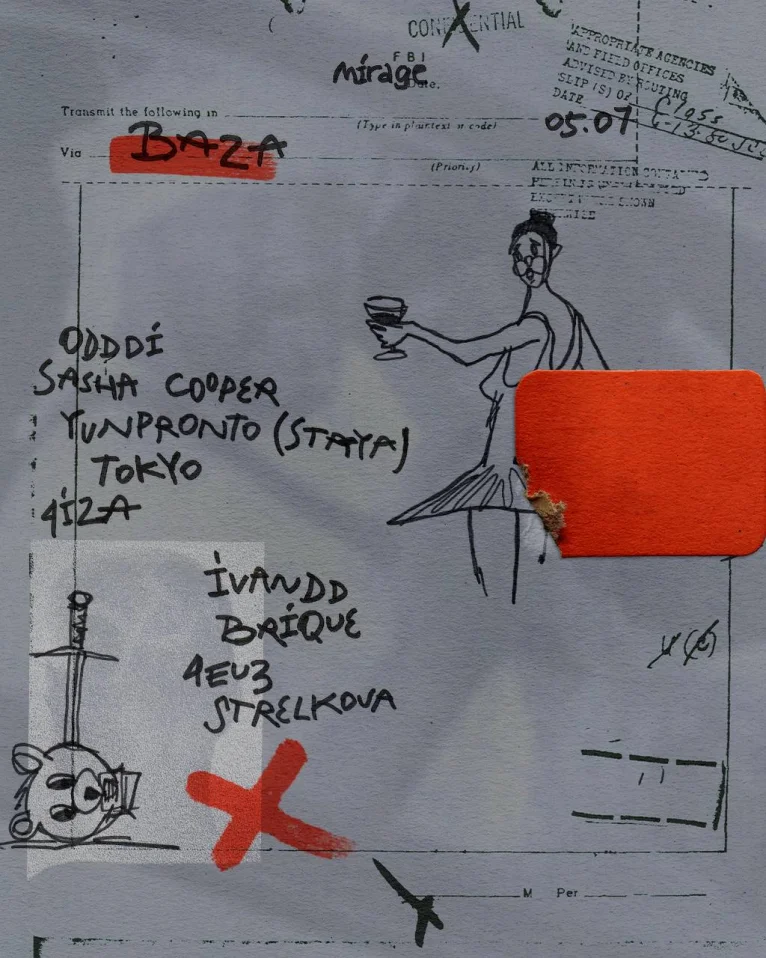 CONFIDENTIAL
FBI
mirage
Date.
APPROPRIATE AGENCIES
AND FIELD OFFICES
ADVISED BY ROUTING
SLIP(S) OF
DATE
Transmit the following in
(Type in plaintext or code)
05.07
Via
BAZA
(Priority)
ALL INFORMATION CONTAINED
EXCEPT WHERE SHOWN
OTHERWISE
ODDDÍ
SASHA COOPER
YUNPRONTO (STAYA)
TOKYO
4ÍZA
ÍVANDD
BRÍQUE
4EU3
STRELKOVA
M Per